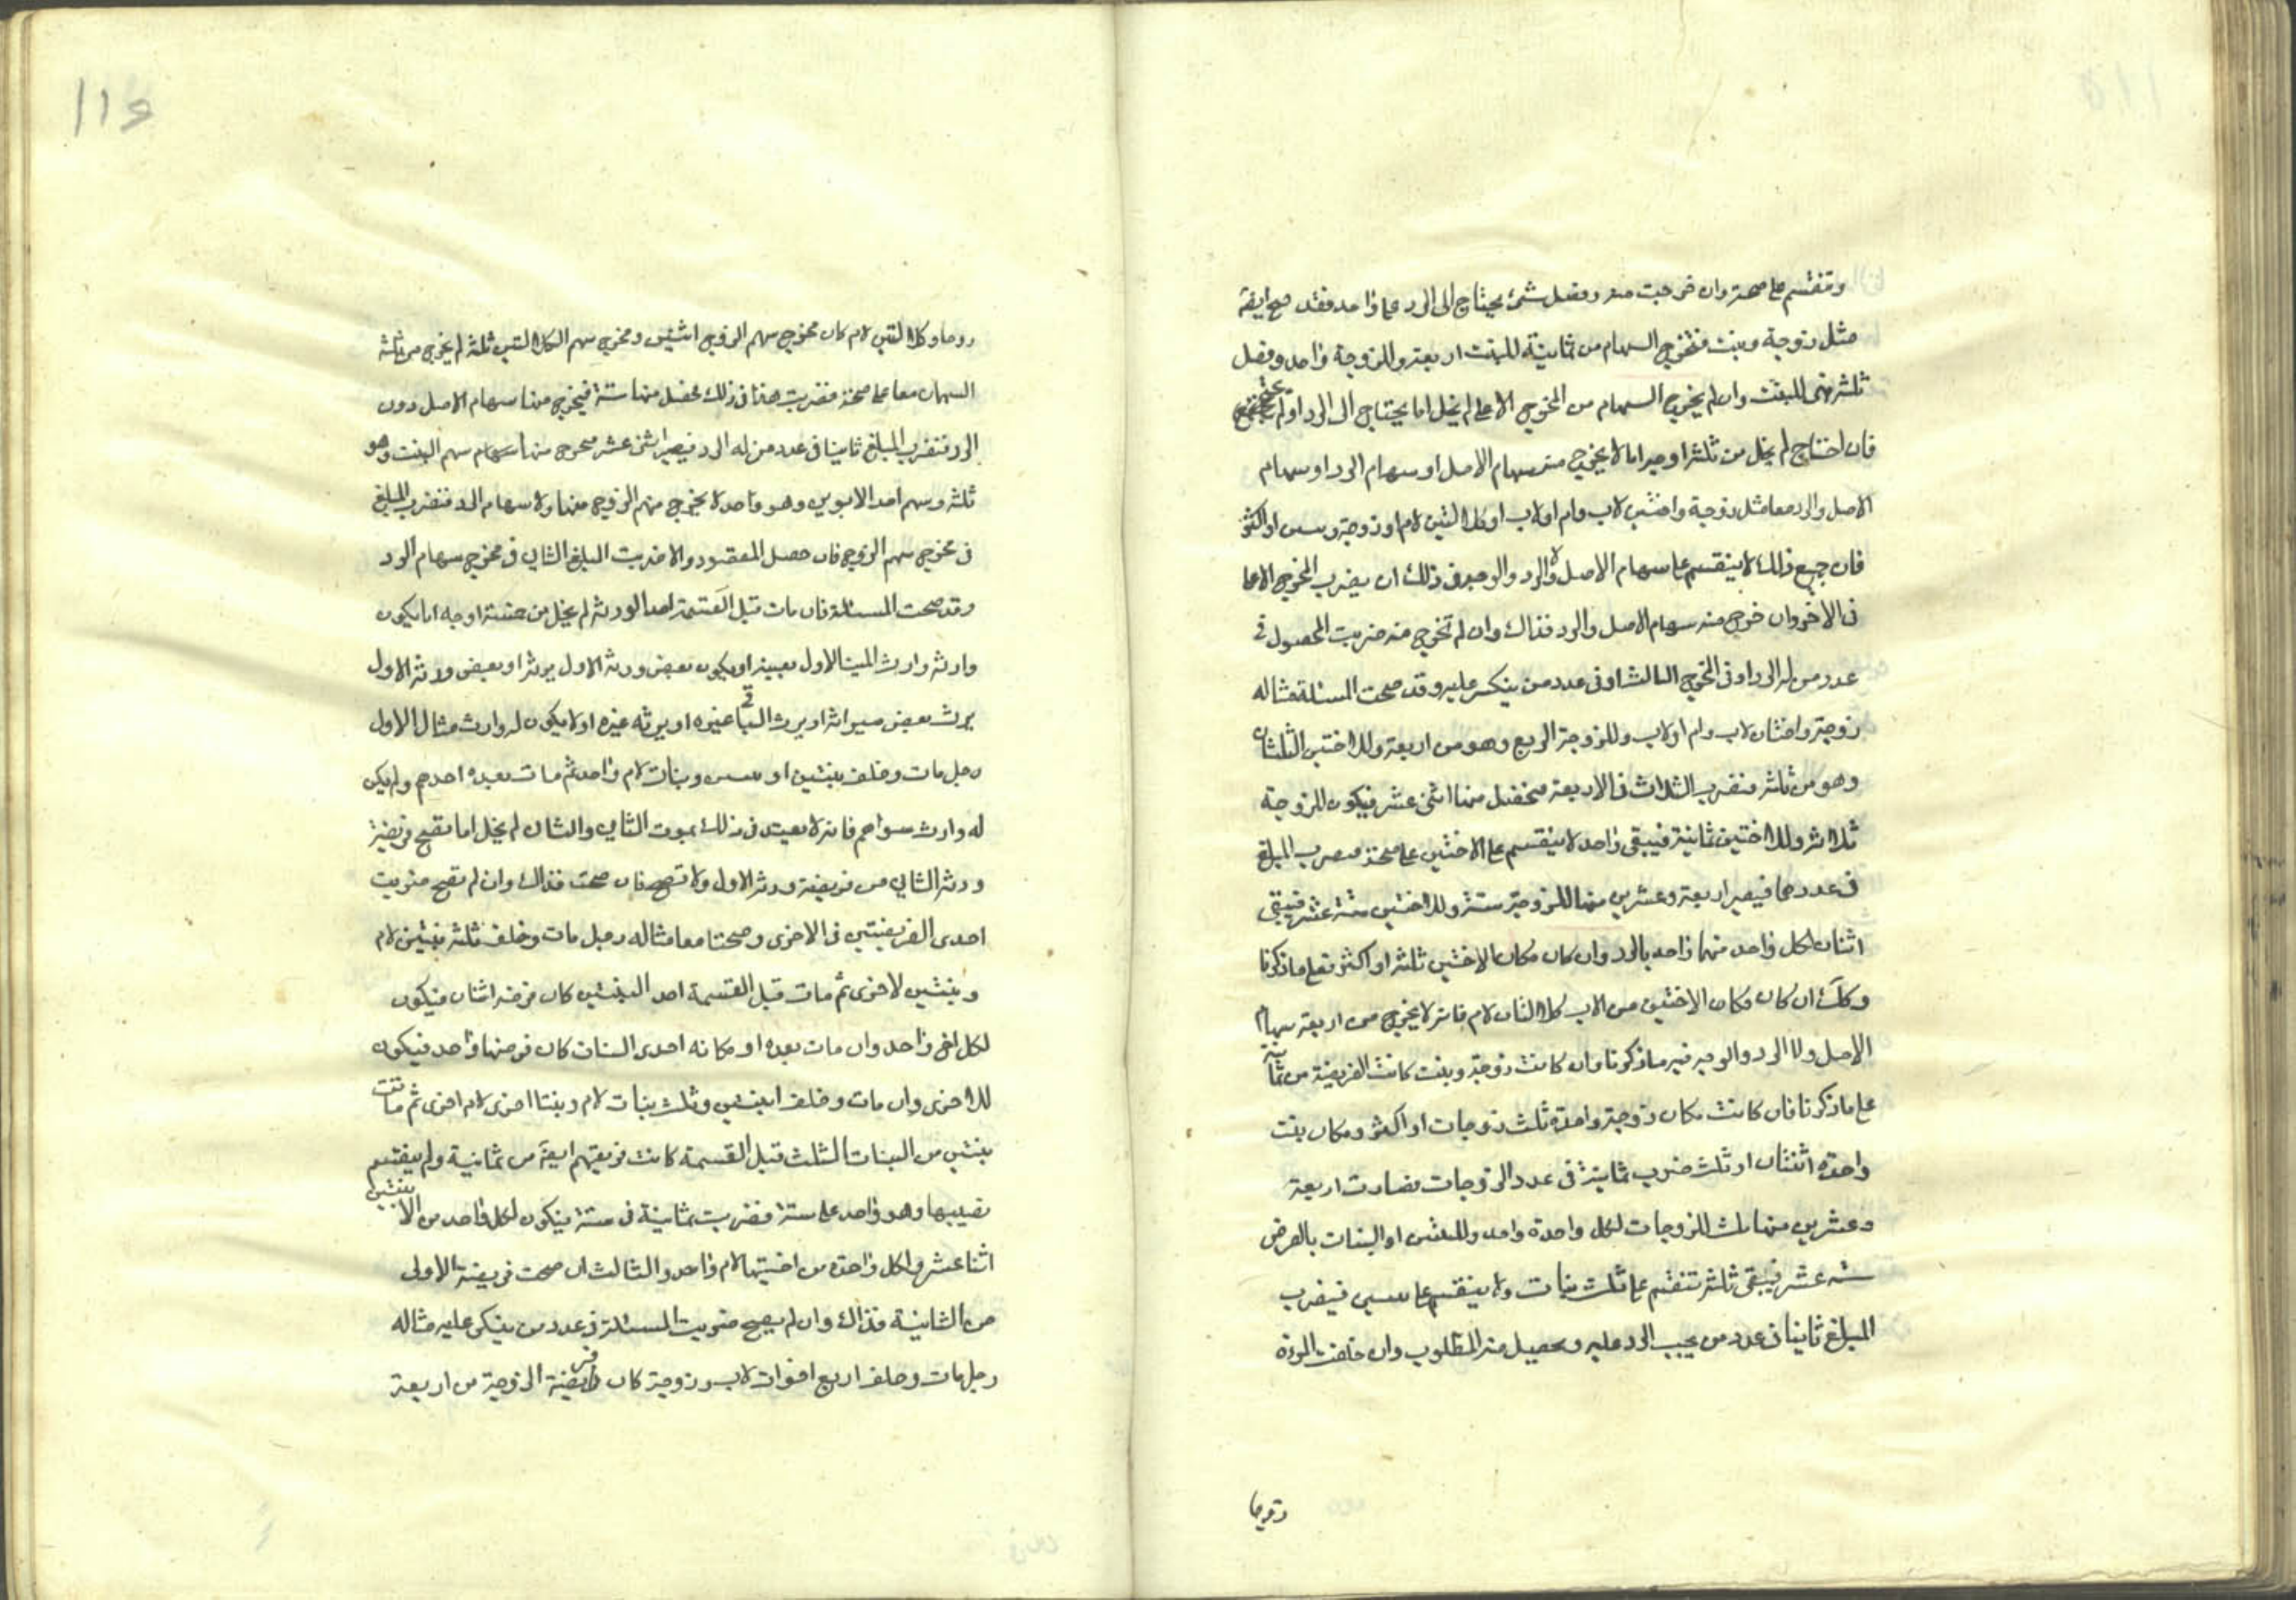 وتنقسم على صحة وان خرجت منه وفضل شئ يحتاج الى الرد على واحد فقد صح ايضا
مثل زوجة وبنت فتخرج السهام من ثمانية للبنت اربعة وللزوجة واحد وفضل
ثلثة فهى للبنت وان لم يخرج السهام من المخرج الاعلى لم يخل اما يحتاج الى الرد او لم يحتج
فان احتاج لم يخل من ثلثة اوجه اما لا يخرج منه سهام الاصل او سهام الرد او سهام
الاصل والرد معا مثل زوجة واختين لاب وام او لاب او كلالتين لام او زوجة وبنتين او اكثر
فان جميع ذلك لا ينقسم على سهام الاصل ولا الرد والوجه فى ذلك ان يضرب المخرج الاعلى
فى الاخر وان خرج منه سهام الاصل والرد فذاك وان لم تخرج منه ضربت المحصول فى
عدد من له الرد او فى المخرج الثالث او فى عدد من ينكسر عليه وقد صحت المسئلة مثاله
زوجة واختان لاب وام او لاب وللزوجة الربع وهو من اربعة وللاختين الثلثان
وهو من ثلثة فنضرب الثلاث فى الاربعة فتحصل منها اثنى عشر فيكون للزوجة
ثلاثة وللاختين ثمانية فيبقى واحد لا ينقسم على الاختين على صحة فيضرب المبلغ
فى عددهما فيصير اربعة وعشرين منها للزوجة ستة وللاختين ستة عشر فيبقى
اثنان لكل واحد منهما واحد بالرد وان كان مكان الاختين ثلثة او اكثر فعلى ما ذكرنا
وكك ان كان مكان الاختين من الاب كلالتان لام فانه لا يخرج من اربعة سهام
الاصل ولا الرد والوجه فيه ما ذكرنا وان كانت زوجة وبنت كانت الفريضة من ثمانية
على ما ذكرنا فان كانت مكان زوجة واحدة ثلث زوجات او اكثر ومكان بنت
واحدة اثنتان او ثلث ضرب ثمانية فى عدد الزوجات فصارت اربعة
وعشرين منها ثلث للزوجات لكل واحدة واحد وللبنتين او البنات بالفرض
ستة عشر فيبقى ثلثة تنقسم على ثلث بنات ولا ينقسم على بنتين فيضرب
المبلغ ثانيا فى عدد من يجب الرد عليه ويحصل منه المطلوب وان خلفت المرءة
زوجا
زوجا وكلالتين لام كان مخرج سهم الزوج اثنين ومخرج سهم الكلالتين ثلثة لم يخرج من ثلثة
السهمان معا على صحة فضربت هذا فى ذلك فحصل منها ستة فيخرج منها سهام الاصل دون
الرد فتضرب المبلغ ثانيا فى عدد من له الرد فيصير اثنى عشر فيخرج منها سهام سهم البنت وهو
ثلثة وسهم احد الابوين وهو واحد لا يخرج منهم الزوج منها ولا سهام الرد فتضرب المبلغ
فى مخرج سهم الزوج فان حصل المقصود والا ضربت المبلغ الثانى فى مخرج سهام الرد
وقد صحت المسئلة فان مات قبل القسمة احد الورثة لم يخل من خمسة اوجه اما يكون
وارثه وارث الميت الاول بعينه او يكون بعض ورثة الاول يرثه او بعض ورثة الاول
يرث بعض ميراثه او يرث الباقى غيره او يرثه غيره او لا يكون له وارث مثال الاول
رجل مات وخلف بنتين او بنين وبنات لام واحد ثم مات بعده احدهم ولم يكن
له وارث سواهم فانه لا يعيد فى ذلك بموت الثانى والثانى لم يخل اما تصح فريضة
ورثة الثانى من فريضة ورثة الاول ولا تصح فان صحت فذاك وان لم تصح ضربت
احدى الفريضتين فى الاخرى وصحتا معا مثاله رجل مات وخلف ثلثة بنين لام
وبنتين لاخرى ثم مات قبل القسمة احد البنتين كان فرضه اثنان فيكون
لكل اخ واحد وان مات بعده او مكانه احدى البنات كان فرضها واحد فيكون
للاخرى وان مات وخلف ابنتين وثلث بنات لام وبنتا اخرى لام اخرى ثم ماتت
بنتين من البنات الثلث قبل القسمة كانت فريقتهم ايضا من ثمانية ولم ينقسم
نصيبها وهو واحد على ستة فضربت ثمانية فى ستة فيكون لكل واحد من الابنين
اثنا عشر ولكل واحدة من اختيها لام واحد والثالث ان صحت فريضة الاولى
من الثانية فذاك وان لم يصح ضربت المسئلة فى عدد من ينكسر عليه مثاله
رجل مات وخلف اربع اخوات لاب وزوجة كان فريضة الزوجة من اربعة